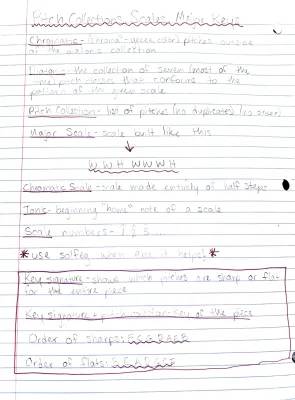 Pitch Collections, Scales, Major Keys
Chromatic - (chroma - color) pitches outside
of the diatonic collection
- the collection of seven (most of the
time) pitch classes that conforms to the
pattern of the given scale
Pitch Collection - list of pitches (no duplicates) (no order)
Major Scale - scale built like this
W W H W W W H
Chromatic Scale - scale made entirely of half steps
Tonic - beginning "home" note of a scale
Scale numbers -
*use solfeg when it helps!*
Key signature - shows which pitches are sharp or flat
for the entire piece
Key signature + = key of the piece
Order of sharps:
Order of flats: